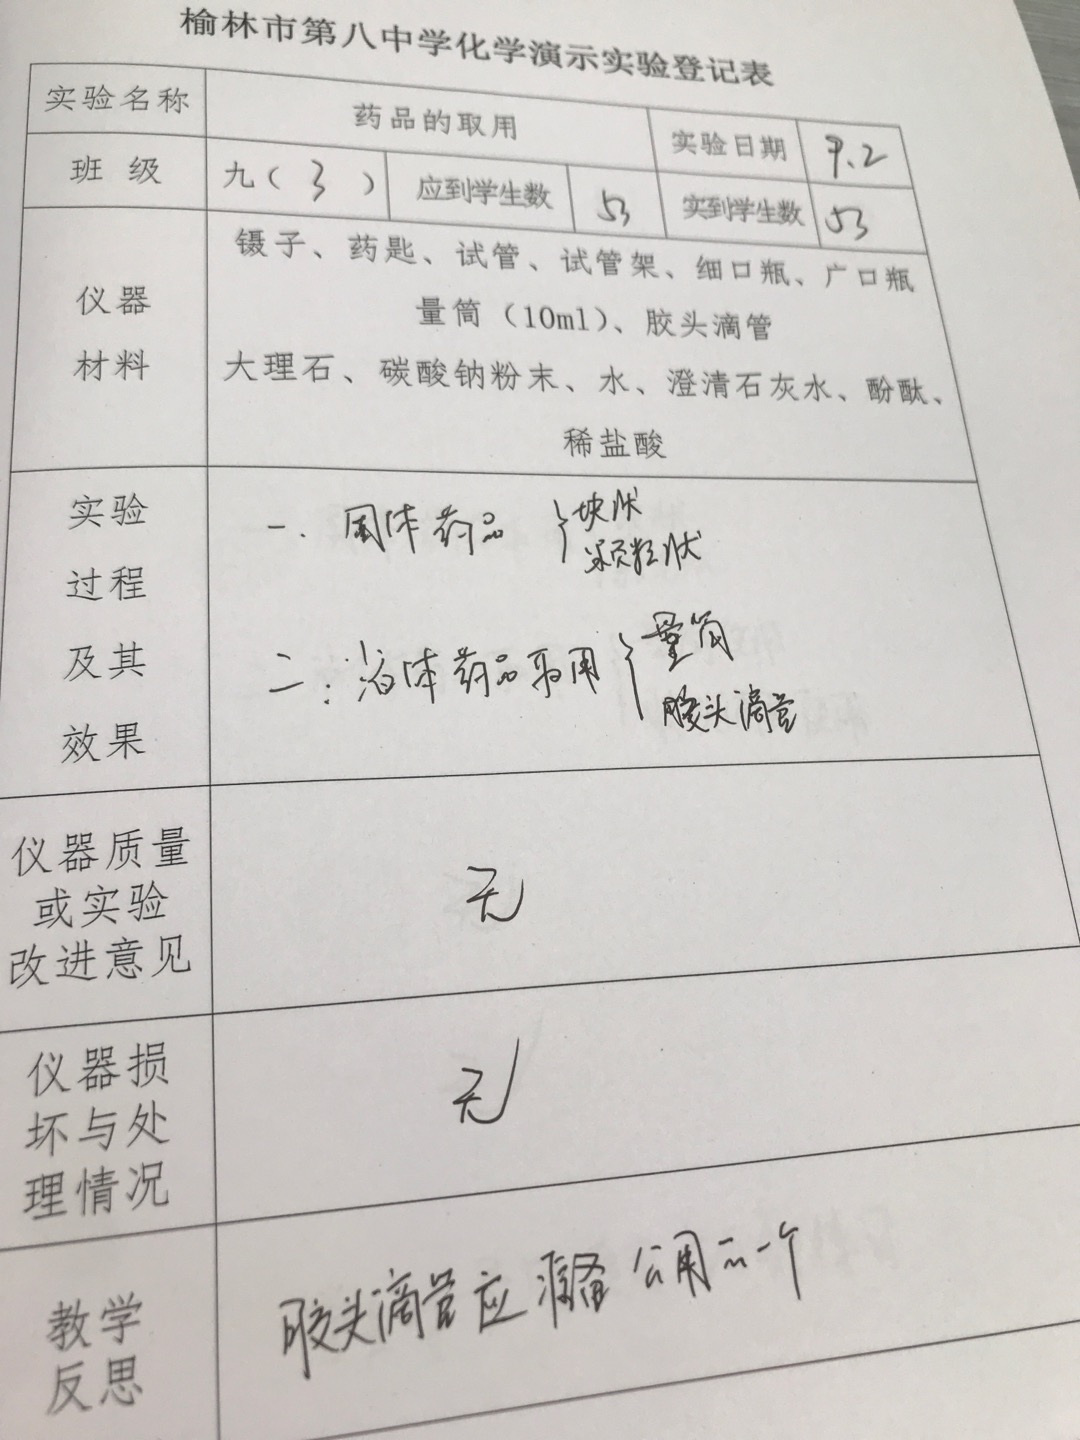 榆林市第八中学化学演示实验登记表
实验名称 药品的取用 实验日期 9.2
班 级 九（3） 应到学生数 53 实到学生数 53
仪器
材料
镊子、药匙、试管、试管架、细口瓶、广口瓶
量筒（10ml）、胶头滴管
大理石、碳酸钠粉末、水、澄清石灰水、酚酞、
稀盐酸
实验
过程
及其
效果
一、固体药品 { 块状
颗粒状
二：液体药品取用 { 量筒
胶头滴管
仪器质量
或实验
改进意见
无
仪器损
坏与处
理情况
无
教学
反思
胶头滴管应 公用一个